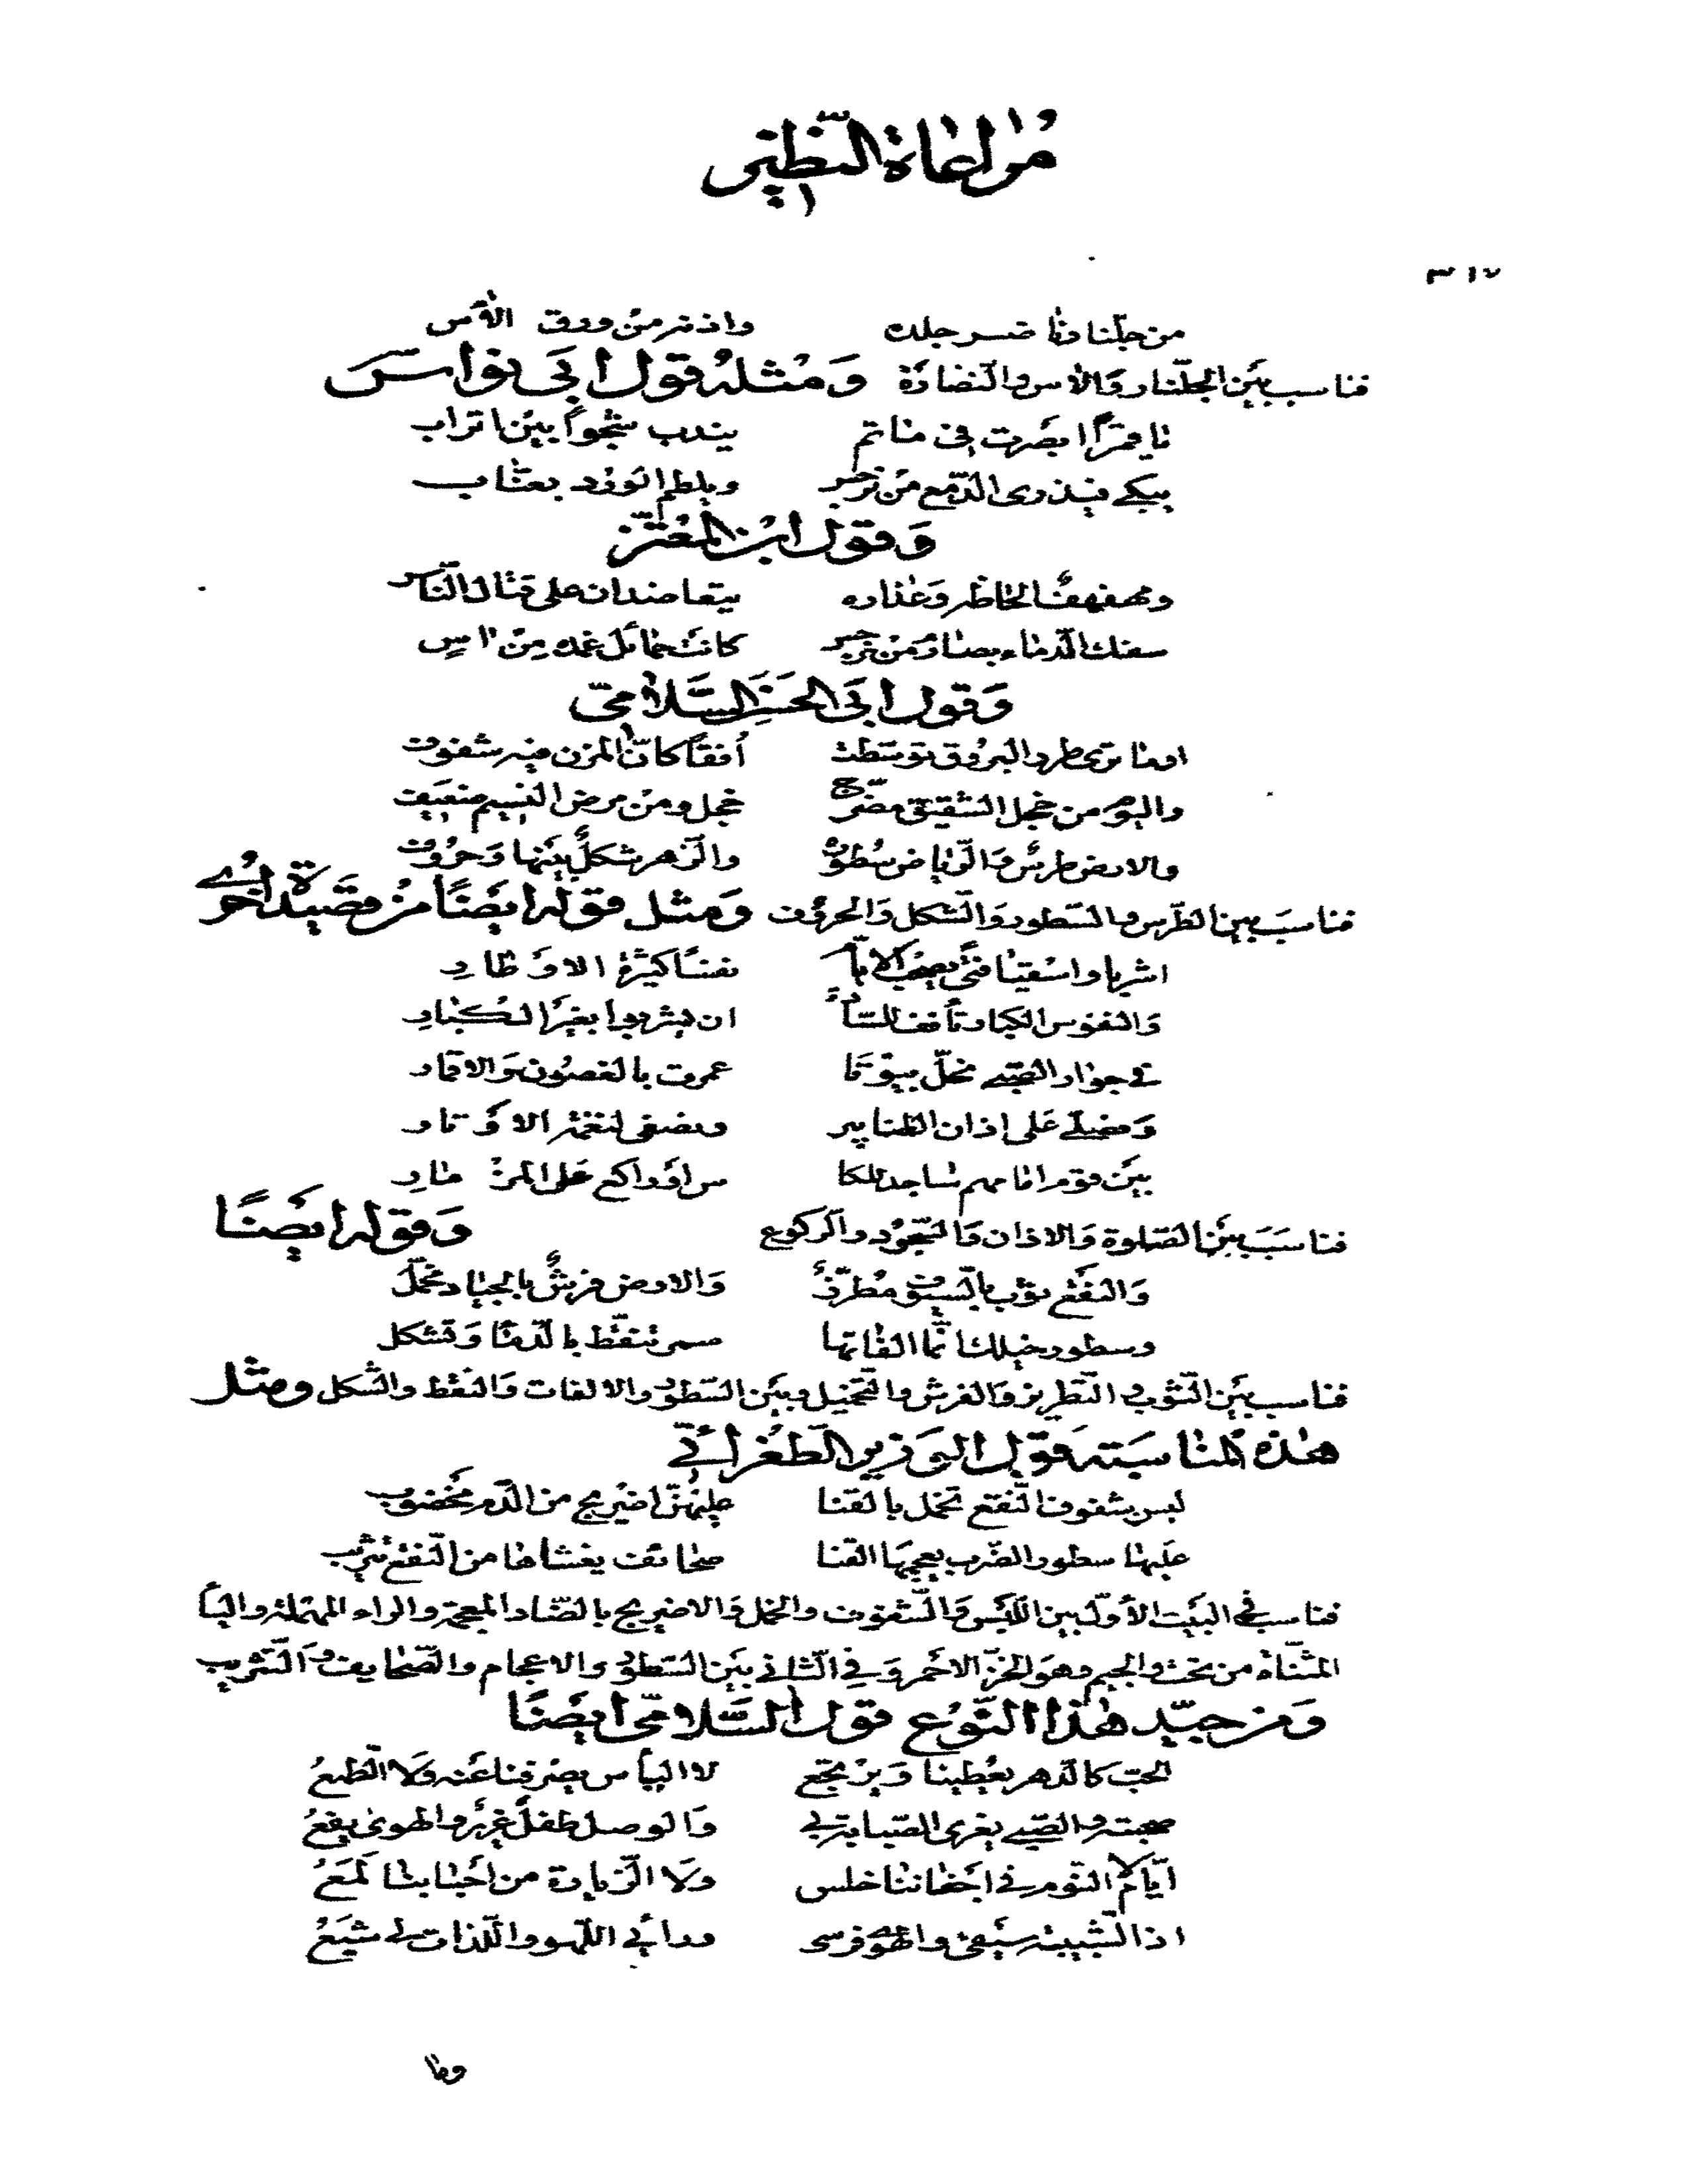 مُراعاة النّظير
٣١٧
من جلّنار ناضر جلده واذنه من ورق الآس
فناسب بين الجلّنار والآس والنّضارة وَمثله قول ابي نواس
يا قمرًا ابصرت في مأتم يندب شجوًا بين اتراب
يبكي فيذري الدّمع من نرجس ويلطم الورد بعنّاب
وَقول ابن المعتزّ
ومهفهف الحاظه وَعذاره يتعاضدان على قتال النّاس
سفك الدّماء بصارم من نرجس كانت حمائل غمده من آسٍ
وَقول ابي الحسن السّلاميّ
اوما ترى طرد البروق توسّطت اُفقًا كانّ المزن فيه شفوف
واليوم من خجل الشّقيق مضرّج خجل ومن مرض النّسيم ضعيف
والارض طرس والرّياض سُطوره والزّهر شكلٌ بينها وَحروف
فناسَب بين الطّرس والسّطور والشّكل وَالحروف وَمثل قوله ايضًا من قصيدة اخرى
اشربا واسقيا فتًى يصحب الايّام نفسًا كثيرة الاوطار
وَالنفوس الكبار تأنف للسّادة ان يشربوا بغير الكبار
في جوار الصّبى نحلّ بيوتًا عمرت بالغصون وَالاقمار
وَنصلّي على اذان الطّنابير ونصغي لنغمة الاوتار
بين قوم امامهم ساجد للكاس او راكع على المزمار
فناسَب بين الصّلوة وَالاذان وَالسّجود والرّكوع وَقوله ايضًا
وَالنّقع ثوب بالسّيوف مُطرّز وَالارض فرش بالجياد مخمّل
وسطور خيلك انّما الفاتها سمر تنقّط بالدّما وَتشكل
فناسب بين الثّوب والتّطريز وَالفرش والتّخميل وبين السّطور والالفات وَالنّقط والشّكل ومثل
هذه المناسبة قول الوزير الطّغرائي
لبس شفوف النّقع تخمل بالقنا عليهنّ اضريج من الدّم مخضوب
عليها سطور الضّرب يعجمها القنا صحائف يغشاها من النّقع تتريب
فناسب في البيت الأوّل بين اللّبس وَالشّفوف والخمل وَالاضريج بالضّاد المعجمة والراء المهملة واليأ
المثنّاة من تحت والجيم وهو الخزّ الاحمر وَفي الثّاني بين السّطور والاعجام والصّحايف والتّتريب
وَمن جيّد هٰذا النّوع قول السّلاميّ ايضًا
الحبّ كالدّهر يعطينا وَيرتجع لا اليأس يصرفنا عنه وَلا الطّمع
صحبته والصّبى يغري الصّبابة بي وَالوصل طفل غرير والهوى يفع
ايّام لا النّوم في اجفاننا خلس ولا الزّيارة من احبابنا لمع
اذ الشّبيبة سيفي والهوى فرسي ورأيي اللّهو واللّذات لي شيع
وما